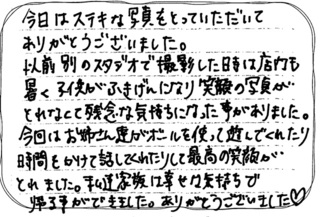 今日はステキな写真をとっていただいて
ありがとうございました。
以前別のスタジオで撮影した時は店内も
暑く子供がふきげんになり笑顔の写真が
とれなくて残念な気持ちになった事がありました。
今回はお姉さん達がボールを使って遊んでくれたり
時間をかけて話してくれたりして最高の笑顔が
とれました。私達家族は幸せな気持ちで
帰る事ができました。ありがとうございました♡